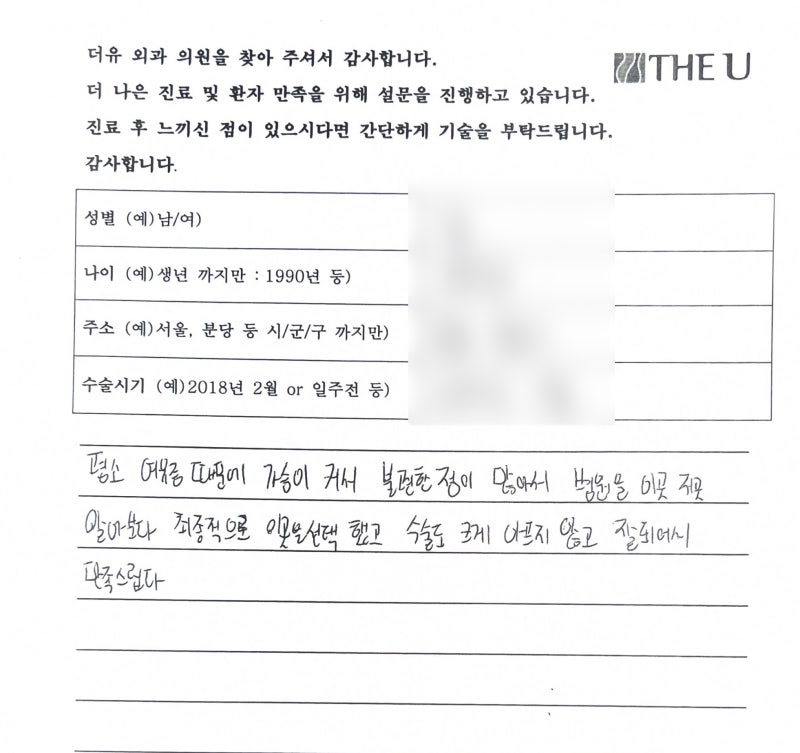 더유 외과 의원을 찾아 주셔서 감사합니다.
THE U
더 나은 진료 및 환자 만족을 위해 설문을 진행하고 있습니다.
진료 후 느끼신 점이 있으시다면 간단하게 기술을 부탁드립니다.
감사합니다.
성별 (예)남/여)
나이 (예)생년 까지만 : 1990년 등)
주소 (예)서울, 분당 등 시/군/구 까지만)
수술시기 (예)2018년 2월 or 일주전 등)
평소 여유증 때문에 가슴이 커서 불편한 점이 많아서 병원을 이곳 저곳
알아보다 최종적으로 이곳을 선택 했고 수술도 크게 아프지 않고 잘되어서
만족스럽다